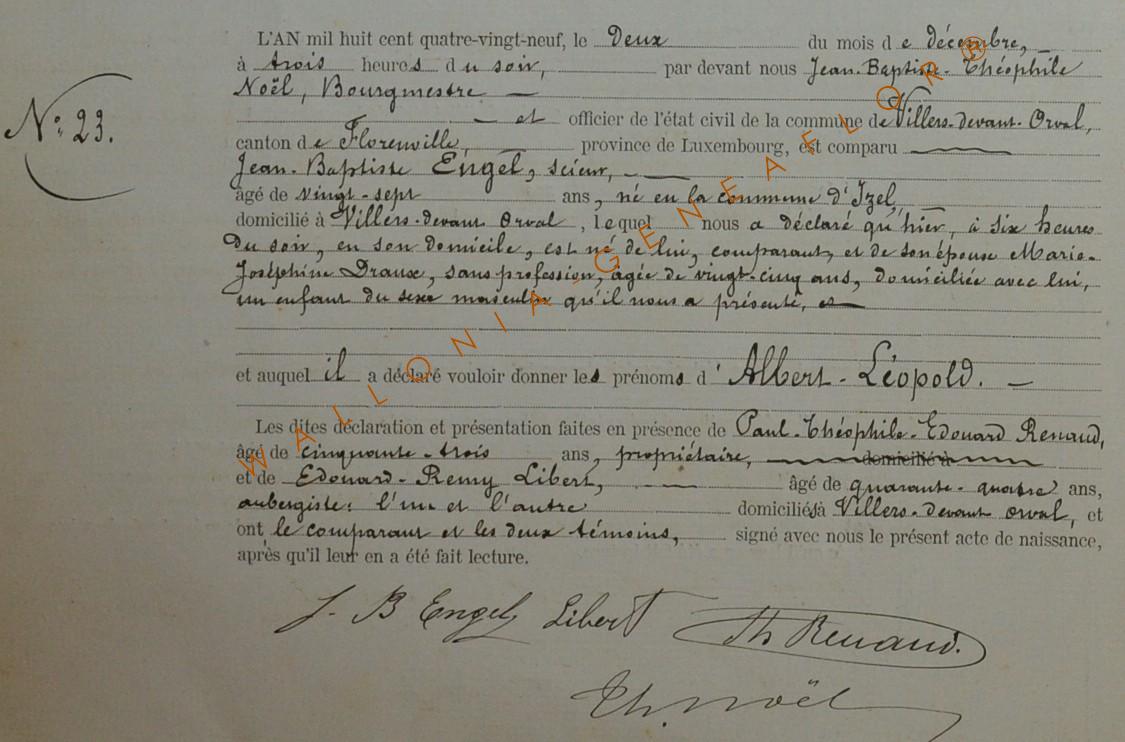 L'AN mil huit cent quatre-vingt-neuf, le Deux du mois de décembre,
à trois heures du soir, par devant nous Jean-Baptiste-Théophile
Noël, Bourgmestre
N° 23.
et officier de l'état civil de la commune de Villers-devant-Orval,
canton de Florenville, province de Luxembourg, est comparu
Jean-Baptiste Engel, scieur,
âgé de vingt-sept ans, né en la commune d'Izel,
domicilié à Villers-devant Orval, lequel nous a déclaré qu'hier, à six heures
du soir, en son domicile, est né de lui, comparant, et de son épouse Marie-
Joséphine Drause, sans profession, âgée de vingt-cinq ans, domiciliée avec lui,
un enfant du sexe masculin qu'il nous a présenté, et
et auquel il a déclaré vouloir donner les prénoms d'Albert-Léopold.
Les dites déclaration et présentation faites en présence de Paul-Théophile-Edouard Renaud,
âgé de cinquante-trois ans, propriétaire, domicilié à
et de Edouard-Remy Libert, âgé de quarante-quatre ans,
aubergiste; l'un et l'autre domiciliés à Villers-devant Orval, et
ont le comparant et les deux témoins, signé avec nous le présent acte de naissance,
après qu'il leur en a été fait lecture.
J. B Engel Libert Th Renaud.
Th. Noël
WALLONIA-GENEALOR®